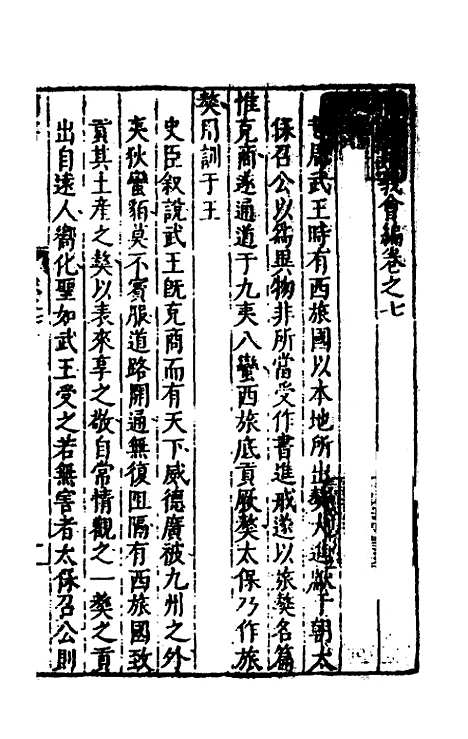 義會編卷之七
周武王時有西旅國以本地所出獒犬進獻于朝太
保召公以爲異物非所當受作書進戒遂以旅獒名篇
惟克商遂通道于九夷八蠻西旅底貢厥獒太保乃作旅
獒用訓于王
史臣叙說武王旣克商而有天下威德廣被九州之外
夷狄蠻貊莫不賓服道路開通無復阻隔有西旅國致
貢其土產之獒以表來享之敬自常情觀之一獒之貢
出自遠人嚮化聖如武王受之若無害者太保召公則